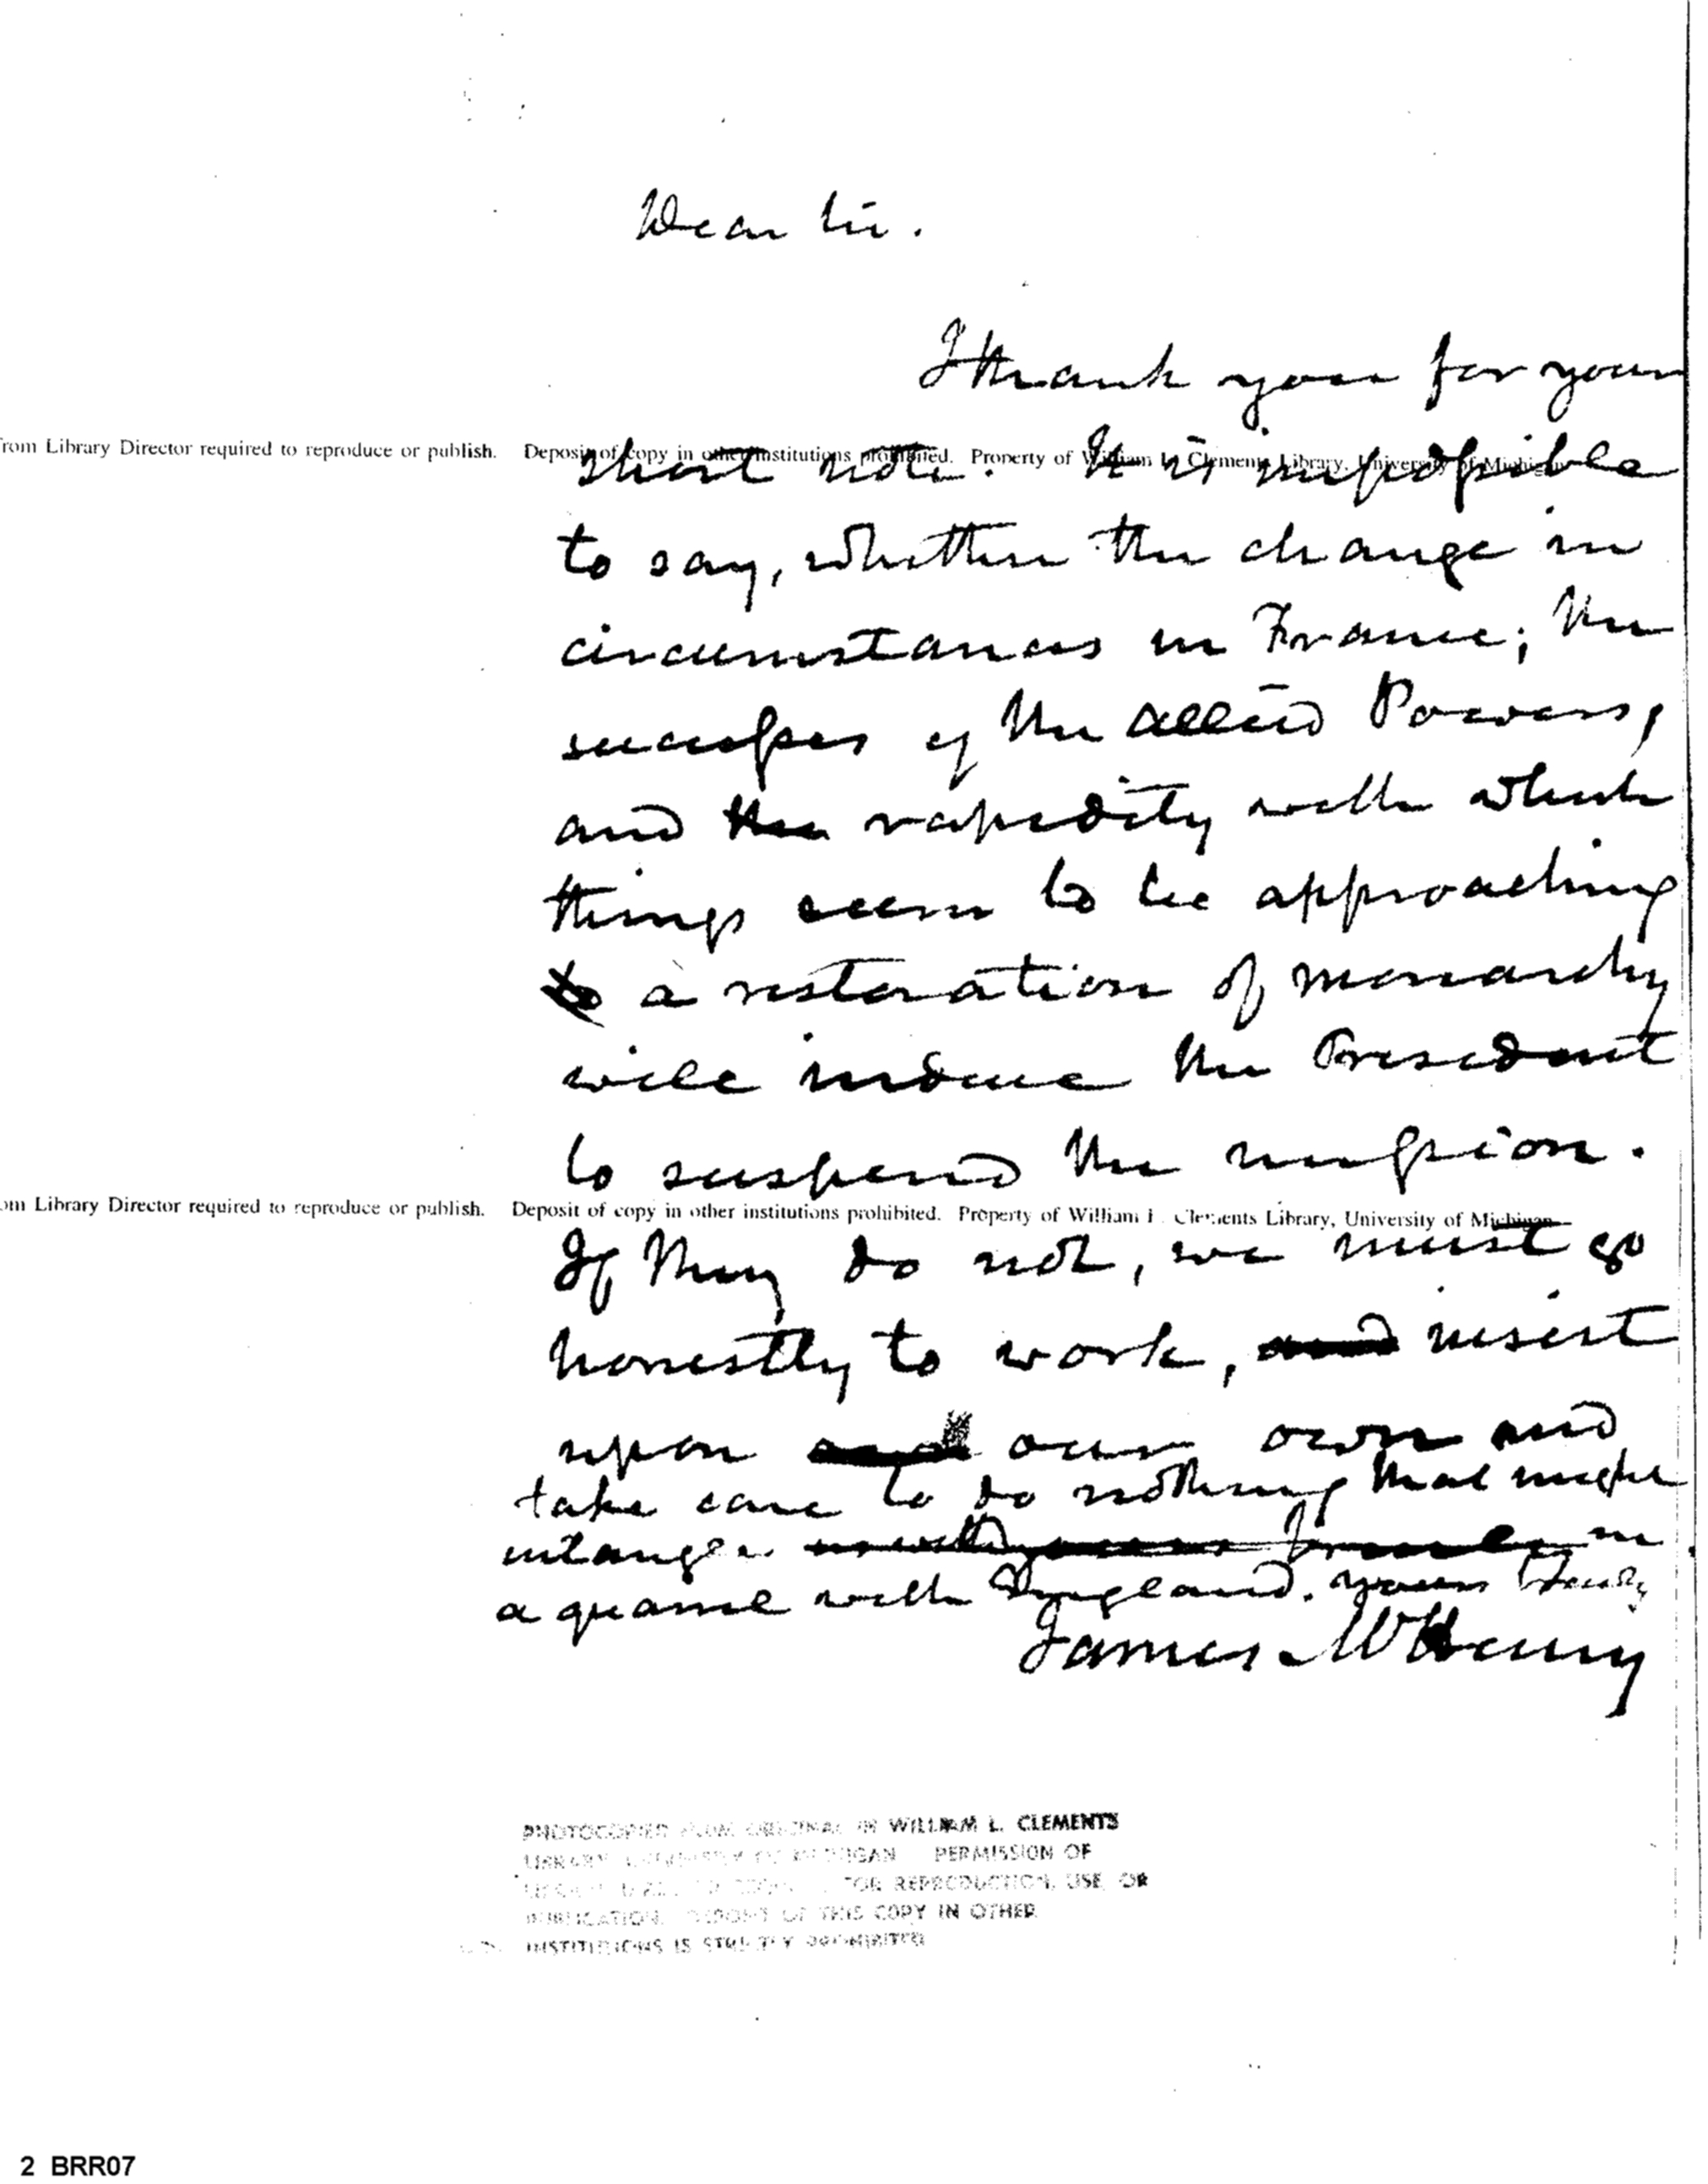 Dear Sir.
I thank you for your
rom Library Director required to reproduce or publish. Deposit of copy in other institutions prohibited. Property of William L. Clements Library, University of Michigan
short note. It is impossible
to say, whether the change in
circumstances in France; the
successes of the allied Powers,
and the rapidity with which
things seem to be approaching
to a restoration of monarchy
will induce the President
to suspend the mission.
om Library Director required to reproduce or publish. Deposit of copy in other institutions prohibited. Property of William L. Clements Library, University of Michigan
If they do not, we must go
honestly to work, and insist
upon our own and
take care to do nothing that might
intangle in
a quarrel with England. yours truly
James McHenry
PHOTOCOPIED FROM ORIGINAL IN WILLIAM L. CLEMENTS
LIBRARY UNIVERSITY OF MICHIGAN PERMISSION OF
FOR REPRODUCTION, USE OR
PUBLICATION. DEPOSIT OF THIS COPY IN OTHER
INSTITUTIONS IS STRICTLY PROHIBITED
2 BRR07